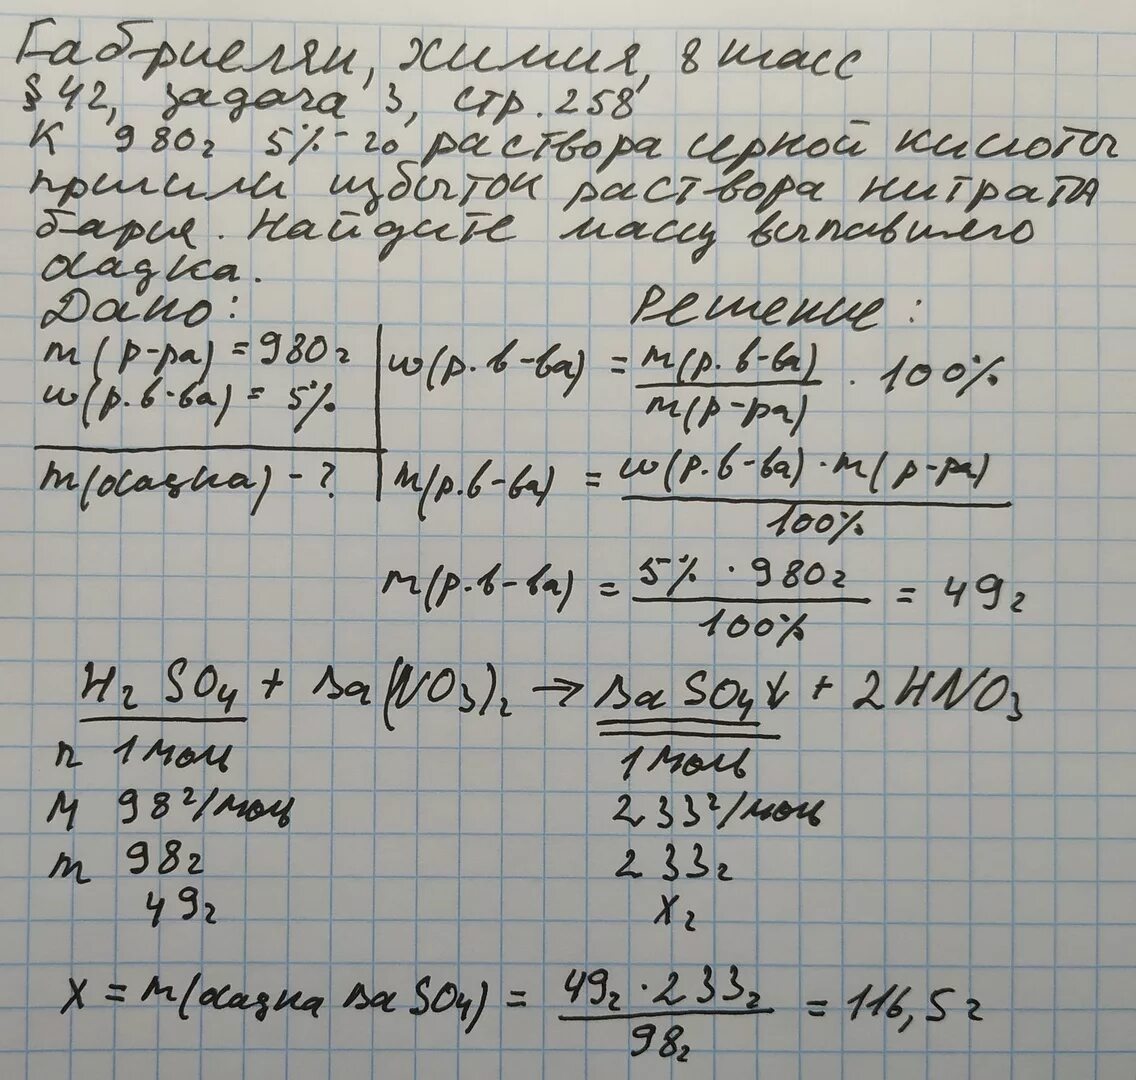 Габриелян, химия, 8 класс
§ 42, задача 3, стр. 258
К 980г 5%-го раствора серной кислоты
прилили избыток раствора нитрата
бария. Найдите массу выпавшего
осадка.
Дано:
m(р-ра) = 980г
w(р.в-ва) = 5%
m(осадка) - ?
Решение:
w(р.в-ва) = m(р.в-ва) / m(р-ра) · 100%
m(р.в-ва) = w(р.в-ва) · m(р-ра) / 100%
m(р.в-ва) = 5% · 980г / 100% = 49г
H₂SO₄ + Ba(NO₃)₂ → BaSO₄↓ + 2HNO₃
n 1моль 1моль
M 98г/моль 233г/моль
m 98г 233г
49г Xг
X = m(осадка BaSO₄) = 49г · 233г / 98г = 116,5г